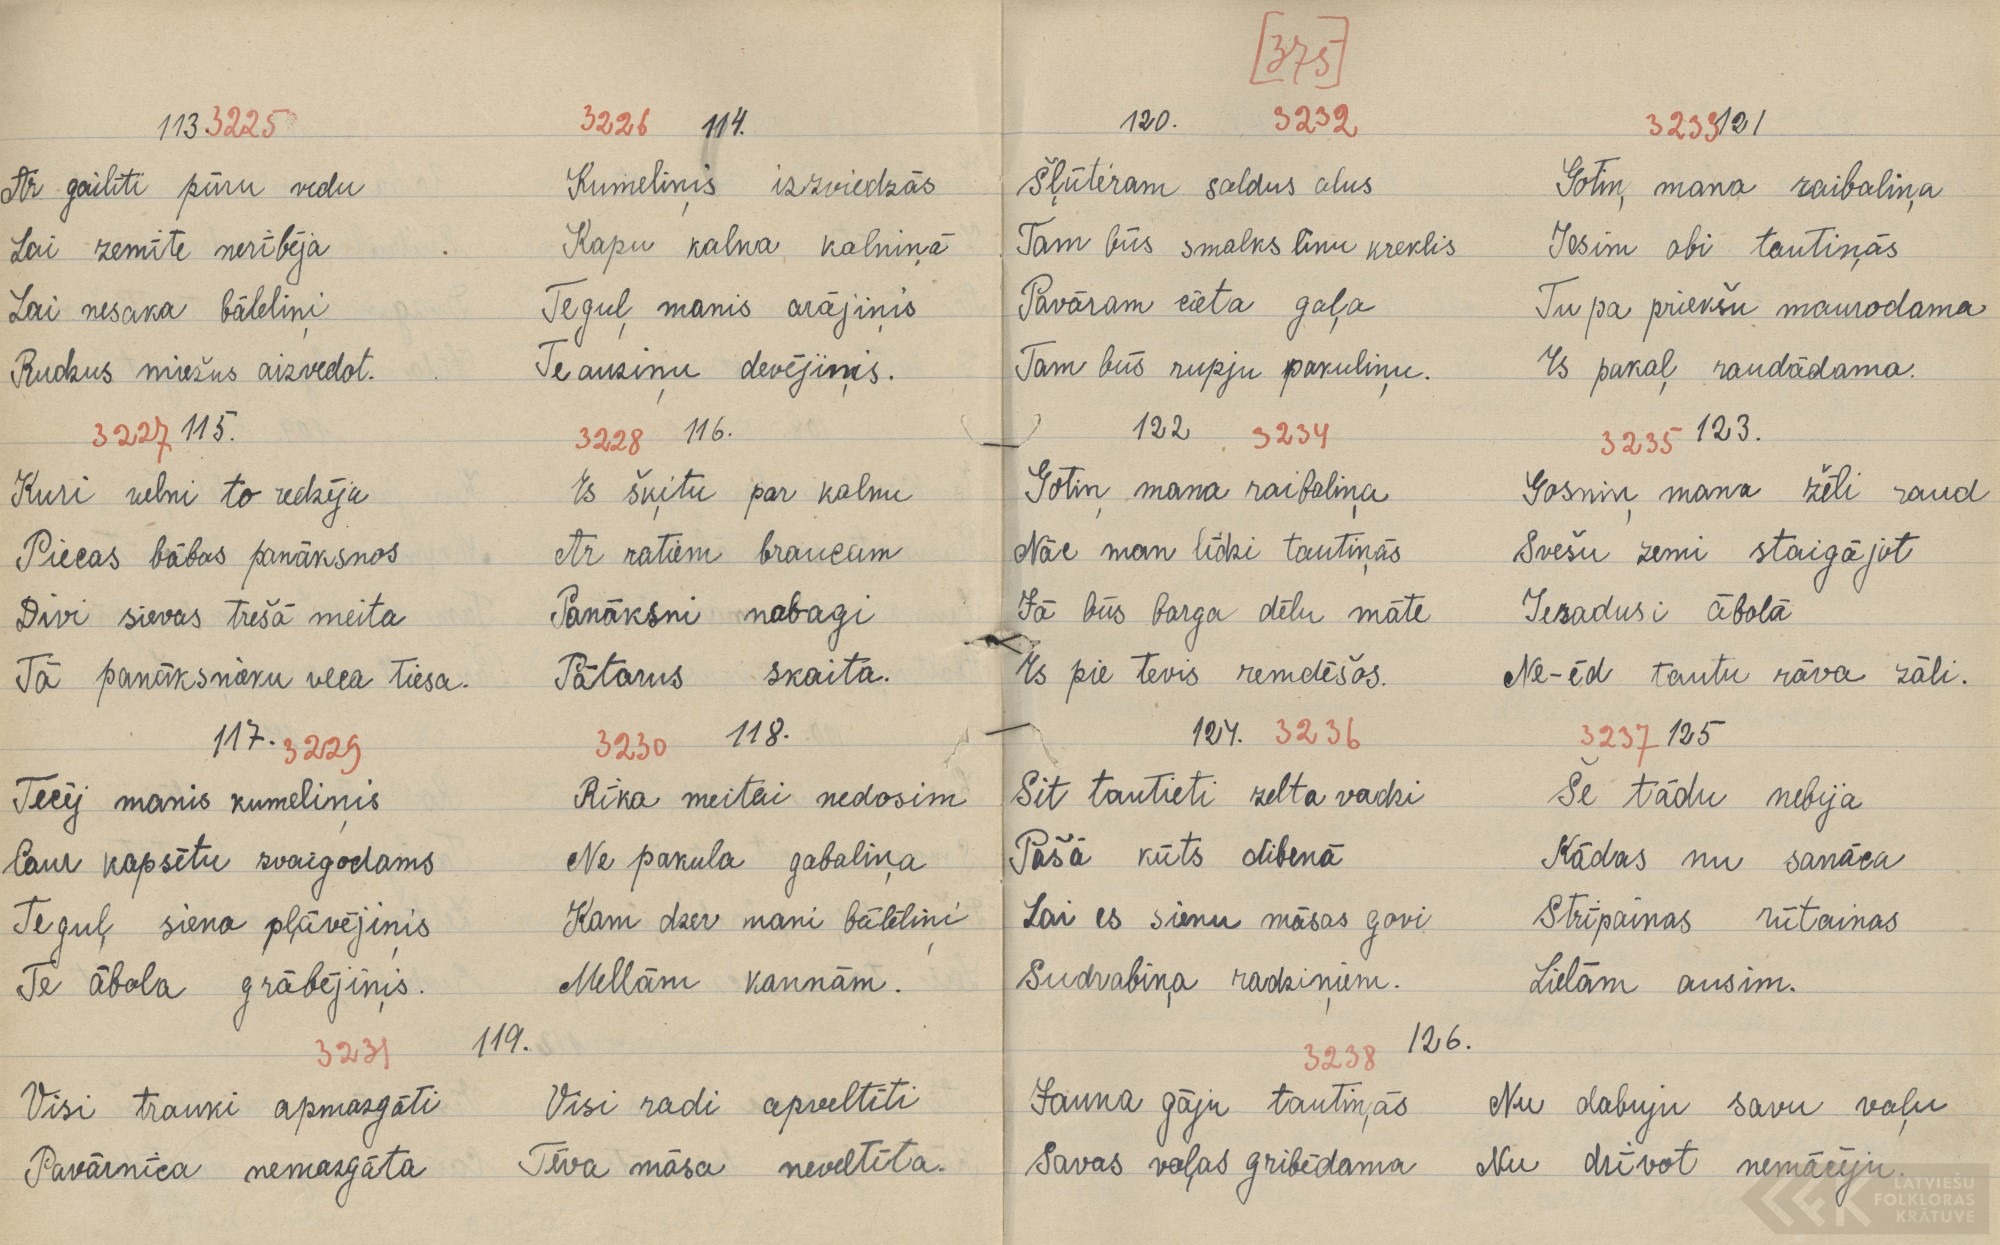 [375]
113 3225
Ar gailīti pūru vedu
Lai zemīte nerībēja
Lai nesaka bāleliņi
Rudzus miežus aizvedot.
3226 114.
Kumeliņis izzviedzās
Kapu kalna kalniņā
Te guļ manis arājiņis
Te auziņu devējiņis.
3227 115.
Kuri velni to redzēja
Piecas bābas panāksnos
Divi sievas trešā meita
Tā panāksnieku veca tiesa.
3228 116.
Es šķitu par kalnu
Ar ratiem braucam
Panāksni nabagi
Pātarus skaita.
117. 3229
Tecēj manis kumeliņis
Caur kapsētu zvaigodams
Te guļ siena pļāvējiņis
Te ābola grābējiņis.
3230 118.
Rīka meitai nedosim
Ne pakula gabaliņa
Kam dzer mani bāleliņi
Mellām kannām.
3231 119.
Visi trauki apmazgāti
Pavārnīca nemazgāta
Visi radi apveltīti
Tēva māsa neveltīta.
120. 3232
Šļūteram saldus alus
Tam būs smalks linu kreklis
Pavāram cieta gaļa
Tam būs rupju pakuliņu.
3233 121
Gotiņ mana raibaliņa
Iesim abi tautiņās
Tu pa priekšu maurodama
Es pakaļ raudādama.
122 3234
Gotiņ mana raibaliņa
Nāc man līdzi tautiņās
Jā būs barga dēlu māte
Es pie tevis remdēšos.
3235 123.
Gosniņ mana žēli raud
Svešu zemi staigājot
Ieradusi ābolā
Ne-ēd tautu rāva zāli.
124. 3236
Sit tautieti zelta vadzi
Pašā kūts dibenā
Lai es sienu māsas govi
Sudrabiņa radziņiem.
3237 125
Še tādu nebija
Kādas nu sanāca
Strīpainas rūtainas
Lielām ausim.
3238 126.
Jauna gāju tautiņās
Savas vaļas gribēdama
Nu dabuju savu vaļu
Nu dzīvot nemācēju.
LATVIEŠU
FOLKLORAS
KRĀTUVE